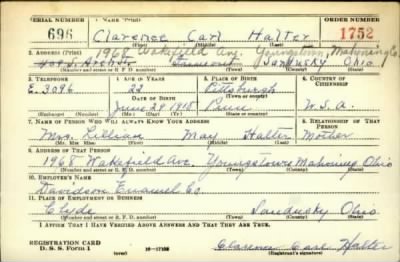 SERIAL NUMBER 1. NAME (Print) ORDER NUMBER
696 Clarence Carl Halter 1752
1968 Wakefield Ave. Youngstown, Mahoning Co.
2. ADDRESS (Print)
Sandusky Ohio
(Number and street or R. F. D. number) (Town) (County) (State)
3. TELEPHONE 4. AGE IN YEARS 5. PLACE OF BIRTH 6. COUNTRY OF CITIZENSHIP
E. 3096 22 Pittsburgh
DATE OF BIRTH (Town or county)
June 29 1918 Penn U.S.A.
(Exchange) (Number) (Mo.) (Day) (Yr.) (State or country)
7. NAME OF PERSON WHO WILL ALWAYS KNOW YOUR ADDRESS 8. RELATIONSHIP OF THAT PERSON
Mrs. Lillian May Halter Mother
(Mr., Mrs., Miss) (First) (Middle) (Last)
9. ADDRESS OF THAT PERSON
1968 Wakefield Ave. Youngstown Mahoning Ohio
(Number and street or R. F. D. number) (Town) (County) (State)
10. EMPLOYER'S NAME
Davidson Enamel Co
11. PLACE OF EMPLOYMENT OR BUSINESS
Clyde Sandusky Ohio
(Number and street or R. F. D. number) (Town) (County) (State)
I AFFIRM THAT I HAVE VERIFIED ABOVE ANSWERS AND THAT THEY ARE TRUE.
REGISTRATION CARD
D. S. S. Form 1 (over) Clarence Carl Halter
(Registrant's signature)